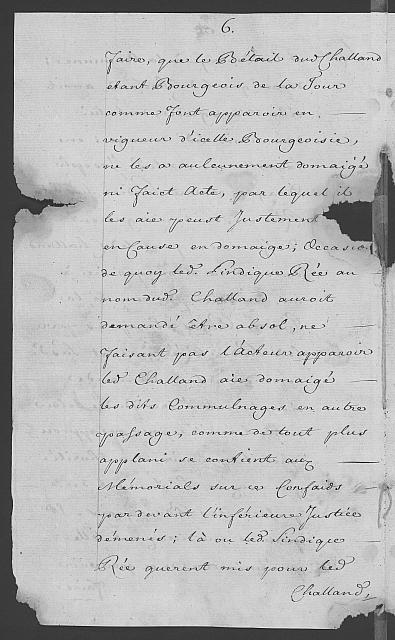 6.
faire, que le Bétail dud Challand
etant Bourgeois de la Tour
comme font apparoir en
vigueur d'icelle Bourgeoisie,
ne les a aulcunement domaigé
ni faict Acte, par lequel il
les aie peust Justement
en Cause en domaige; Occasion
de quoy led. Sindique Rée au
nom dud. Challand auroit
demandé être absol, ne
faisant pas l'Acteur apparoir
led Challand aie domaigé
les dits Commulnages en autre
passage, comme de tout plus
applani se contient aux
Mémorials sur ce Confaids
pardevant l'inférieure Justice
démenés; là ou led. Sindique
Rée querent mis pour led
Challand,